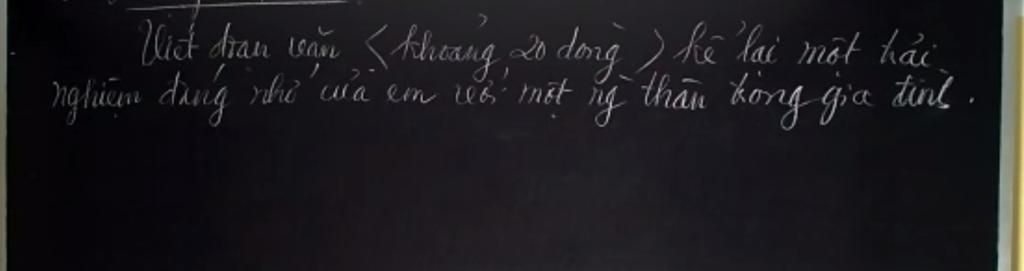 Viết đoạn văn (khoảng 20 dòng) kể lại một trải
nghiệm đáng nhớ của em với một ng thân trong gia đình.